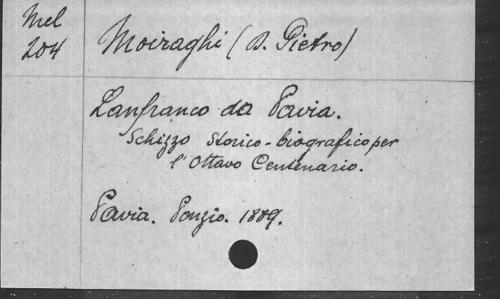 Mel
204
Moiraghi (D. Pietro)
Lanfranco da Pavia.
Schizzo storico-biografico per
l'Ottavo Centenario.
Pavia. Ponzio. 1889.